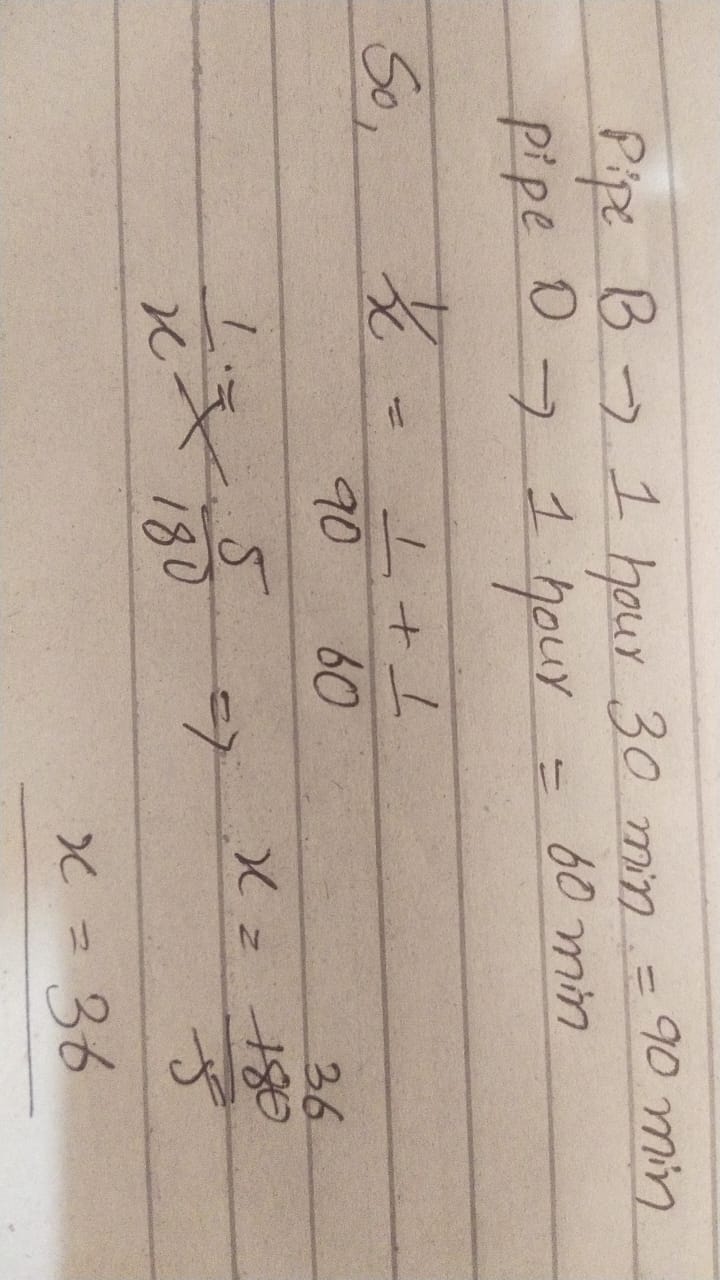 Pipe B → 1 hour 30 min = 90 min
Pipe D → 1 hour = 60 min
So, 1/x = 1/90 + 1/60
1/x = 5/180 ⇒ x = 180/5 36
x = 36